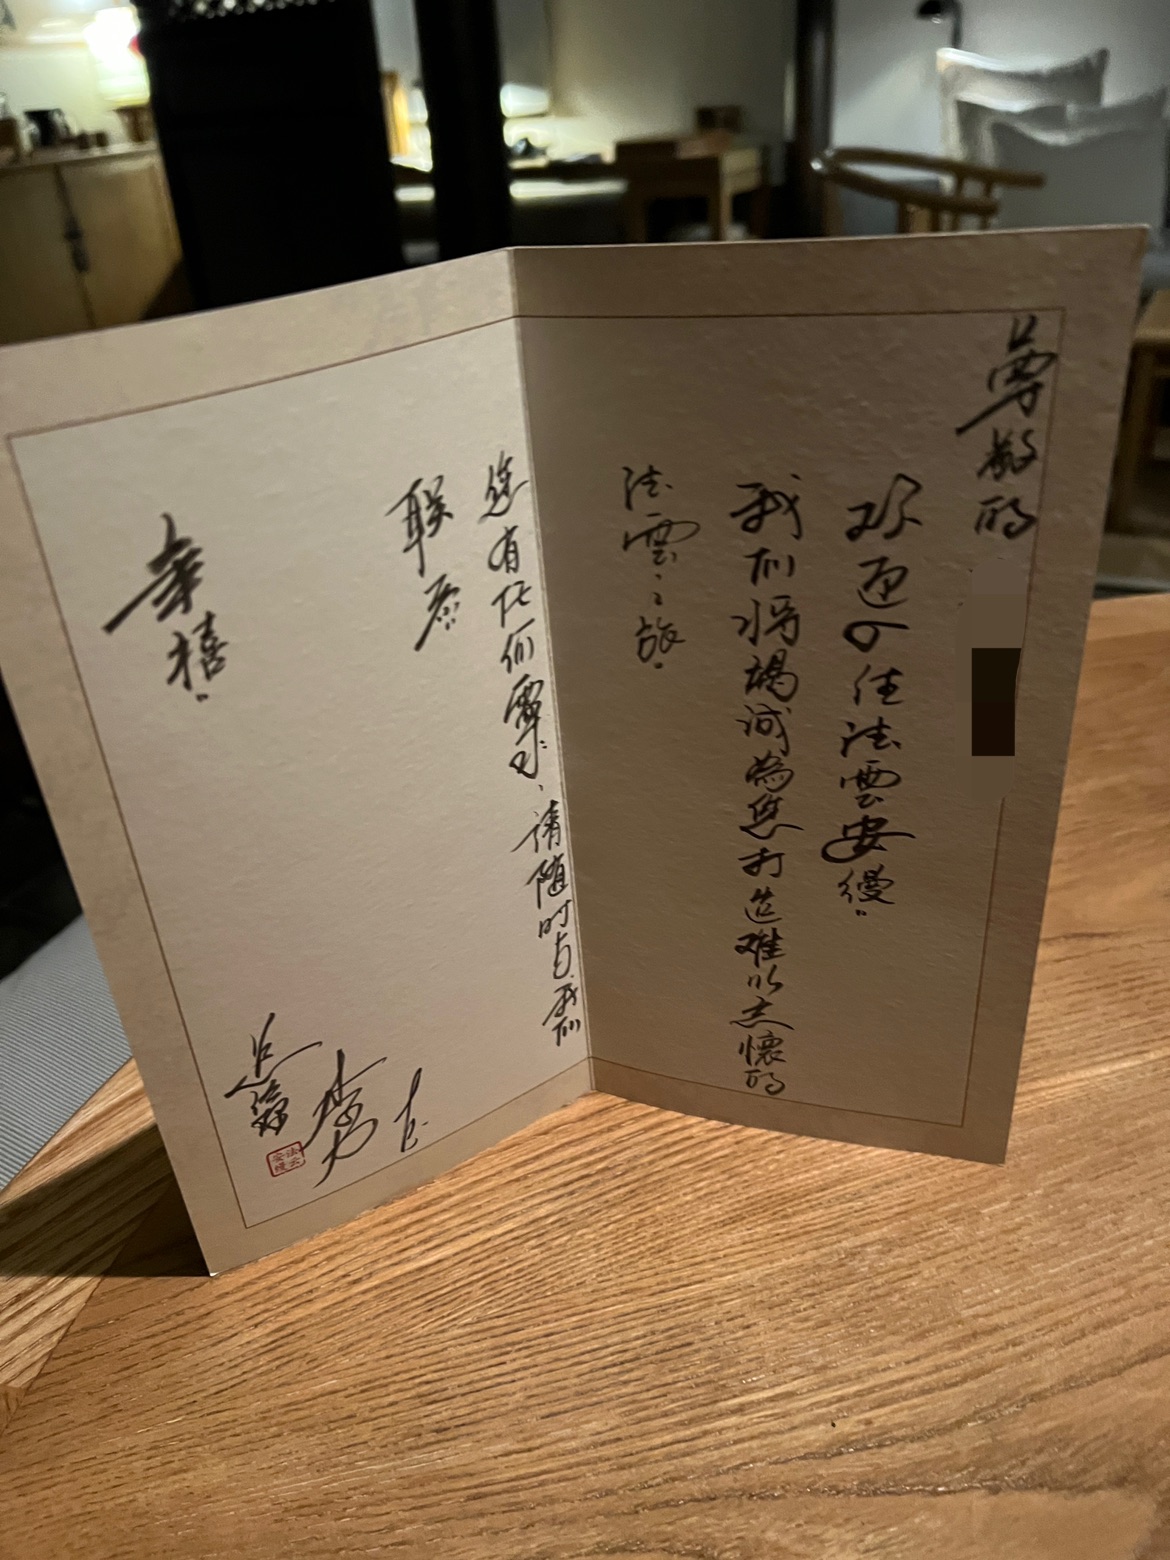 尊敬的
欢迎下住法雲安缦。
我们将竭诚为您打造难以忘懷的
法雲之旅。
您有任何需求，请随时与我们
联系。
幸禧。
法云
安缦